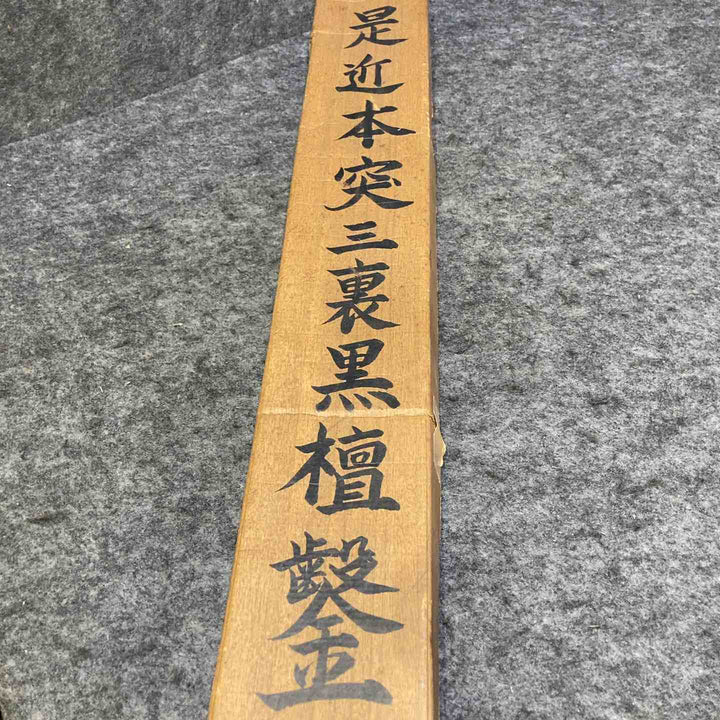 是近本突三裏黒檀鑿